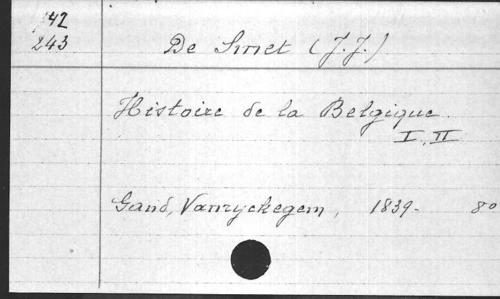 42
243
De Smet (J.J.)
Histoire de la Belgique.
I, II
Gand, Vanryckegem, 1839- 8°